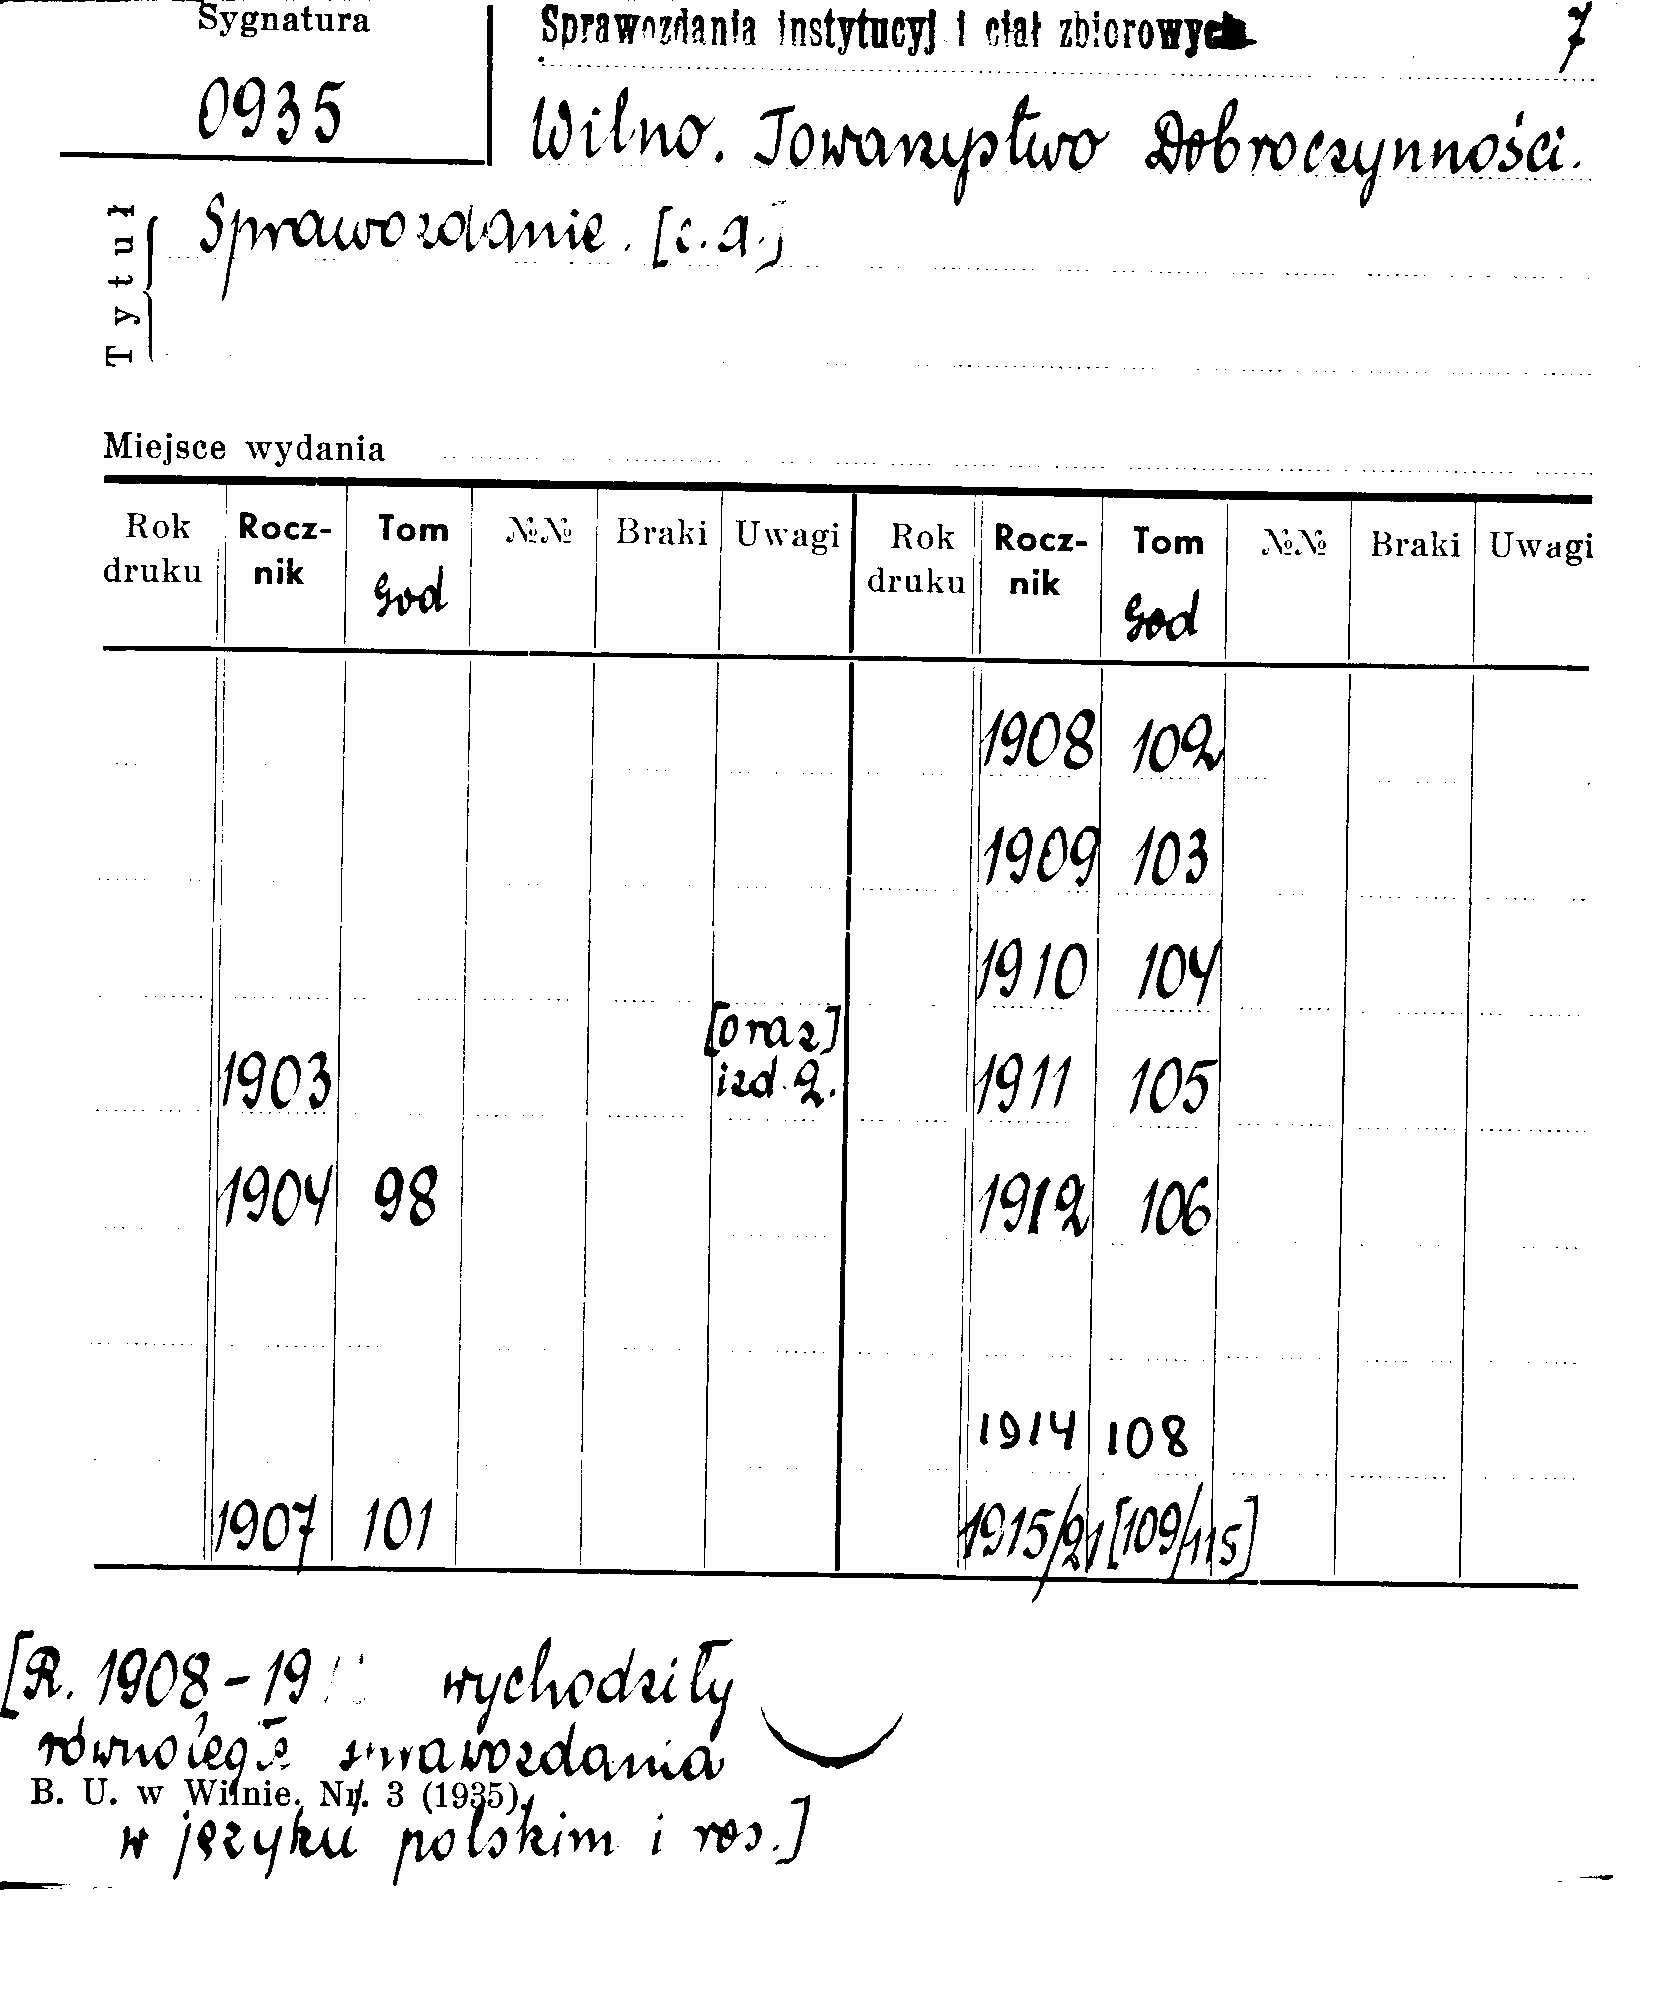 Sygnatura
0935
Sprawozdania instytucyj i ciał zbiorowych
7
Wilno. Towarzystwo Dobroczynności.
Tytuł
Sprawozdanie. [c.a.]
Miejsce wydania
Rok druku Rocz-nik Tom God №№ Braki Uwagi Rok druku Rocz-nik Tom God №№ Braki Uwagi
1908 102
1909 103
1910 104
1903 [oraz] izd. 2. 1911 105
1904 98 1912 106
1914 108
1907 101 1915/21 [109/115]
[R. 1908-19 wychodziły
równolegle sprawozdania
B. U. w Wilnie. Nr. 3 (1935).
w języku polskim i ros.]